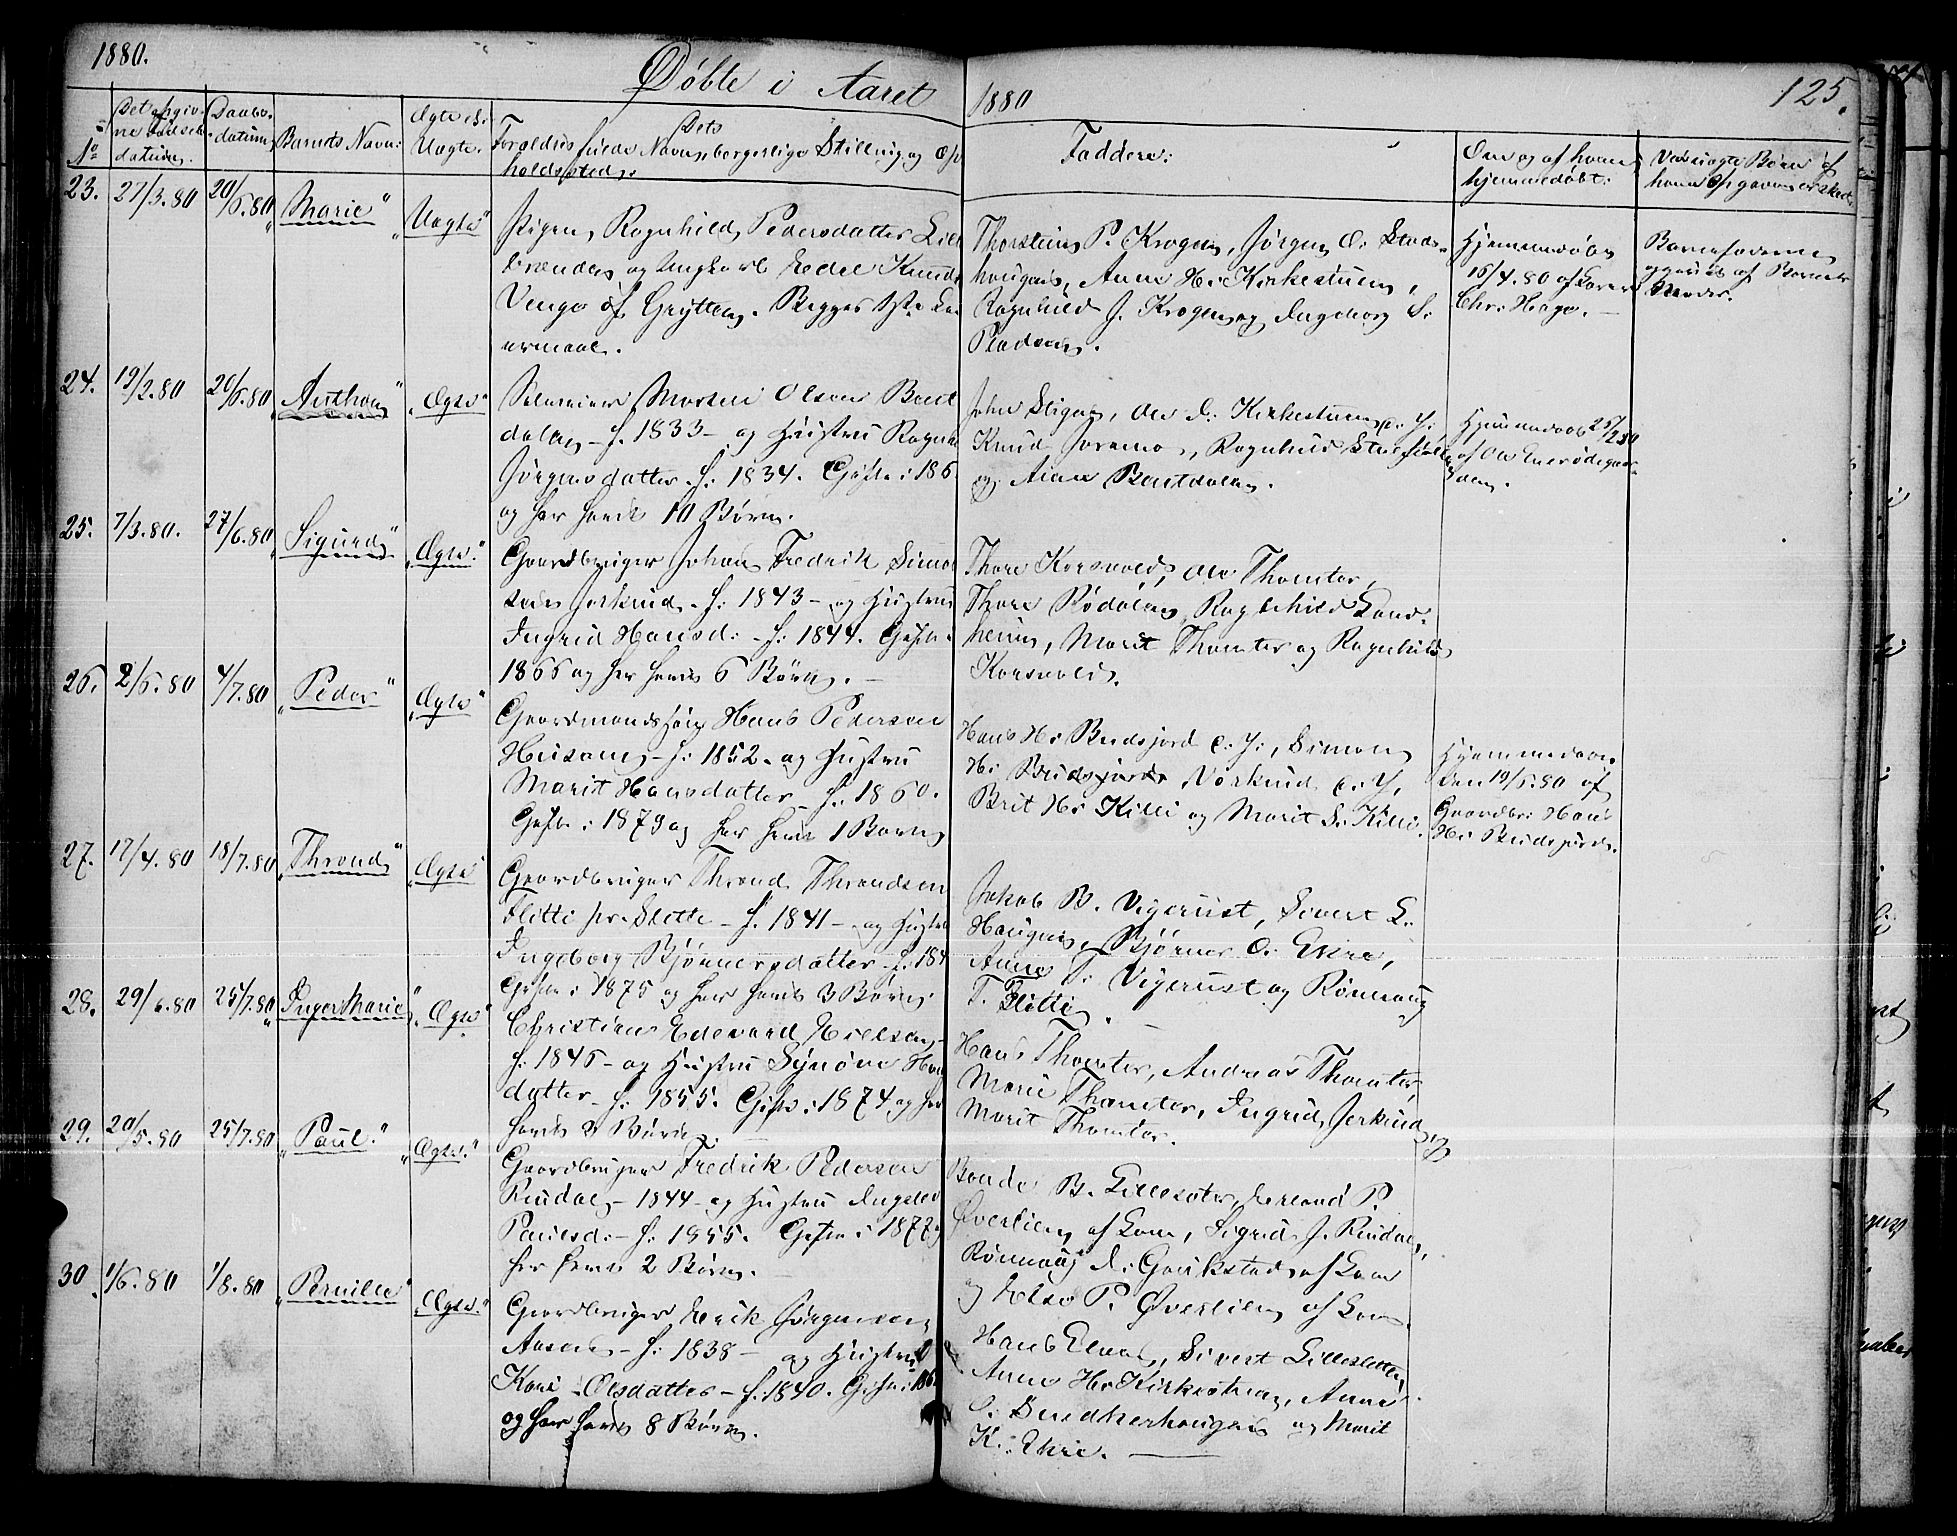 1880.
Døbte i Aaret
1880
125.
No
Det opgiv-
ne Fødsels
datum.
Daabs-
datum
Barnets Navn:
Ægte el.
Uægte.
Dets
Forældres fulde Navne, borgerlige Stilling og Op-
holdssted.
Faddere:
Om og af hvem
hjemmedøbt:
Ved uægte Børn af
hvem Opgaven er sked.
23.
27/3.80
20/6.80
"Marie"
"Uægte"
Pigen Ragnhild Pedersdatter Lill
brænden og Ungkarl Edel Knuds
Venge af Grytten. Begges 1ste Lei
ermaal.
Thorstein P. Krogen, Jørgen O. Stads-
haugen, Anne H. Kirkestuen,
Ragnhild J. Krogen og Ingeborg S.
Pladsen.
Hjemmedøbt
16/4.80 af
Chr. Hage. —
Barnefaderen
opgivet af Barnets
Moder.
24.
19/2.80
20/6.80
"Anthon"
"Ægte"
Morten Olsen Bent
dalen - f. 1833 - og Hustru Ragnh
Jørgensdatter f. 1834. Gifte i 186
og har havt 10 Børn.
John Stigen, Ole d. Kirkestuen, e. Y.
Knud Joramo, Ragnhild
og Anne Bentdalen.
Hjemmedøb 25/2 80
af Ole Enerødegaar-
den.
25.
7/3.80.
27/6.80
"Sigurd"
"Ægte."
Gaardbruger Johan Fredrik Simon
sen Jerkind - f. 1843 - og Hustru
Ingrid Hansd: - f. 1844. Gifte i
1866 og har havt 6 Børn. —
Thore Korsvold, Ole Thomter,
Thore Rødølen, Ragnhild Land-
heim, Marit Thomter og Ragnhild
Korsvold.
26.
2/5.80
4/7.80
"Peder"
"Ægte"
Gaardmandssøn Hans Pedersen
Husom - f. 1852 - og Hustru
Marit Hansdatter - f. 1860.
Gifte i 1879 og har havt 1 Barn
Hans H. Budsjord e. Y., Simon
H. Budsjord Norkind e. Y.
Brit H. Killi og Marit S. Killi.
Hjemmedøbt
den 19/5.80 af
Gaardbr. Hans
H. Budsjord.
27.
17/4.80
18/7.80
"Thrond"
"Ægte"
Gaardbruger Thrond Throndsen
Flitti pr. Slette - f. 1841 - og Hustru
Ingeborg Bjørnersdatter - f. 184
Gifte i 1875 og har havt 3 Børn.
Jakob B. Vigerust, Sivert L.
Haugen, Bjørner O. Ekre,
Anne T. Vigerust og Rønnaug
T. Flitti. —
28.
29/6.80
25/7.80
"Inger Marie"
"Ægte"
Christian Edevard Nielsen -
f. 1845 - og Hustru Synøve Han
datter - f. 1855. Gifte i 1874 og har
havt 2 Børn. —
Hans Thomter, Andreas Thomter,
Marie Thomter, Ingrid Jerkind og
Marit Thomter.
29.
20/5.80
25/7.80
"Paul."
"Ægte."
Gaardbruger Fredrik Pedersen
Rindal - 1844 - og Hustru Ingeb
Paulsd. - f. 1855. Gifte i 1877 og
har havt 2 Børn. —
B. Lillesæter, Erland P.
Øverlien af Lom, Sigrid J. Rindal,
Rønnaug d. Gaukstad af Lom
og Else P. Øverlien af Lom.
30
1/6.80
1/8.80
"Pernille"
"Ægte."
Gaardbruger Erik Jørgensen
Aasen - f. 1838 - og Hustru
Kari Olsdatter - f. 1840. Gifte i 186
og har havt 8 Børn.
Hans Elvel, Sivert Lillesletten,
Anne H. Kirkestuen, Anne
og Marit
K. Ekre. —